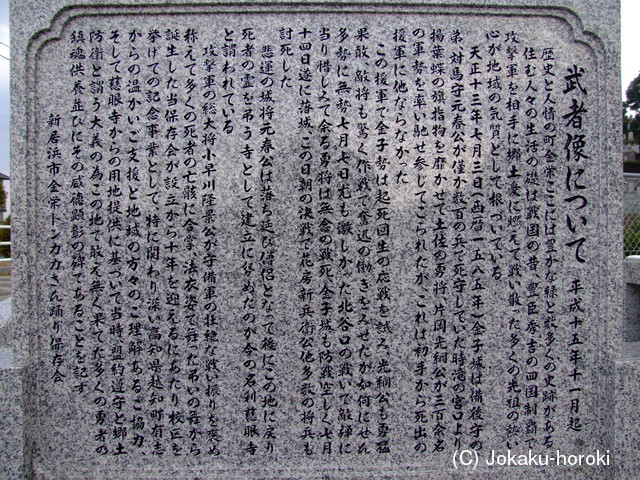 武者像について　平成十五年十一月起
歴史と人情の町金栄ここには豊かな緑と数多くの史跡がある
住む人々の生活の礎は戦国の昔、豊臣秀吉の四国制覇で
攻撃軍を相手に郷土愛に燃えて戦い散った多くの先祖の熱い
心が地域の気質として根づいている
天正十三年七月三日(西暦一五八五年)金子城は備後守の
弟、対馬守元春公が僅か数百の兵で死守していた時滝の宮口より
揚葉蝶の旗指物を靡かせて土佐の勇将、片岡光綱公が三百余名
の軍勢を率い馳せ参じてこられたが、これは初手から死出の
援軍に他ならなかった
この援軍で金子勢は起死回生の応戦を試み、光綱公も勇猛
果敢、敵将も驚く作戦で奮迅の働きをみせたが如何にせん
多勢に無勢七月七日尤も激しかった北谷口の戦いで敵弾に
当り惜しみて余る勇将は無念の戦死、金子城も防戦空しく七月
十四日遂に落城、この日朝の決戦で花房新兵衛公他多数の将兵も
討死した
悲運の城将元春公は落ち延び僧侶となって後にこの地に戻り
死者の霊を弔う寺として建立に努めたのが今の名刹慈眼寺
と謂われている
攻撃軍の総大将小早川隆景公が守備軍の壮絶な戦い振りを褒め
称えて多くの死者の亡骸に合掌、法衣姿で舞った弔いの舞から
誕生した当保存会が設立から十年を迎えるにあたり校区を
挙げての記念事業として、特に関わり深い高知県越知町有志
からの温かいご支援と地域の方々のご理解あるご協力、
そして慈眼寺からの用地提供に基づいて当時、盟約遵守と郷土
防衛と謂う大義の為この地で敢え無く果てた多くの勇者の
鎮魂供養並びにその威徳顕彰の碑であることを記す
新居浜市金栄トンカカさん踊り保存会
(C) Jokaku-horoki